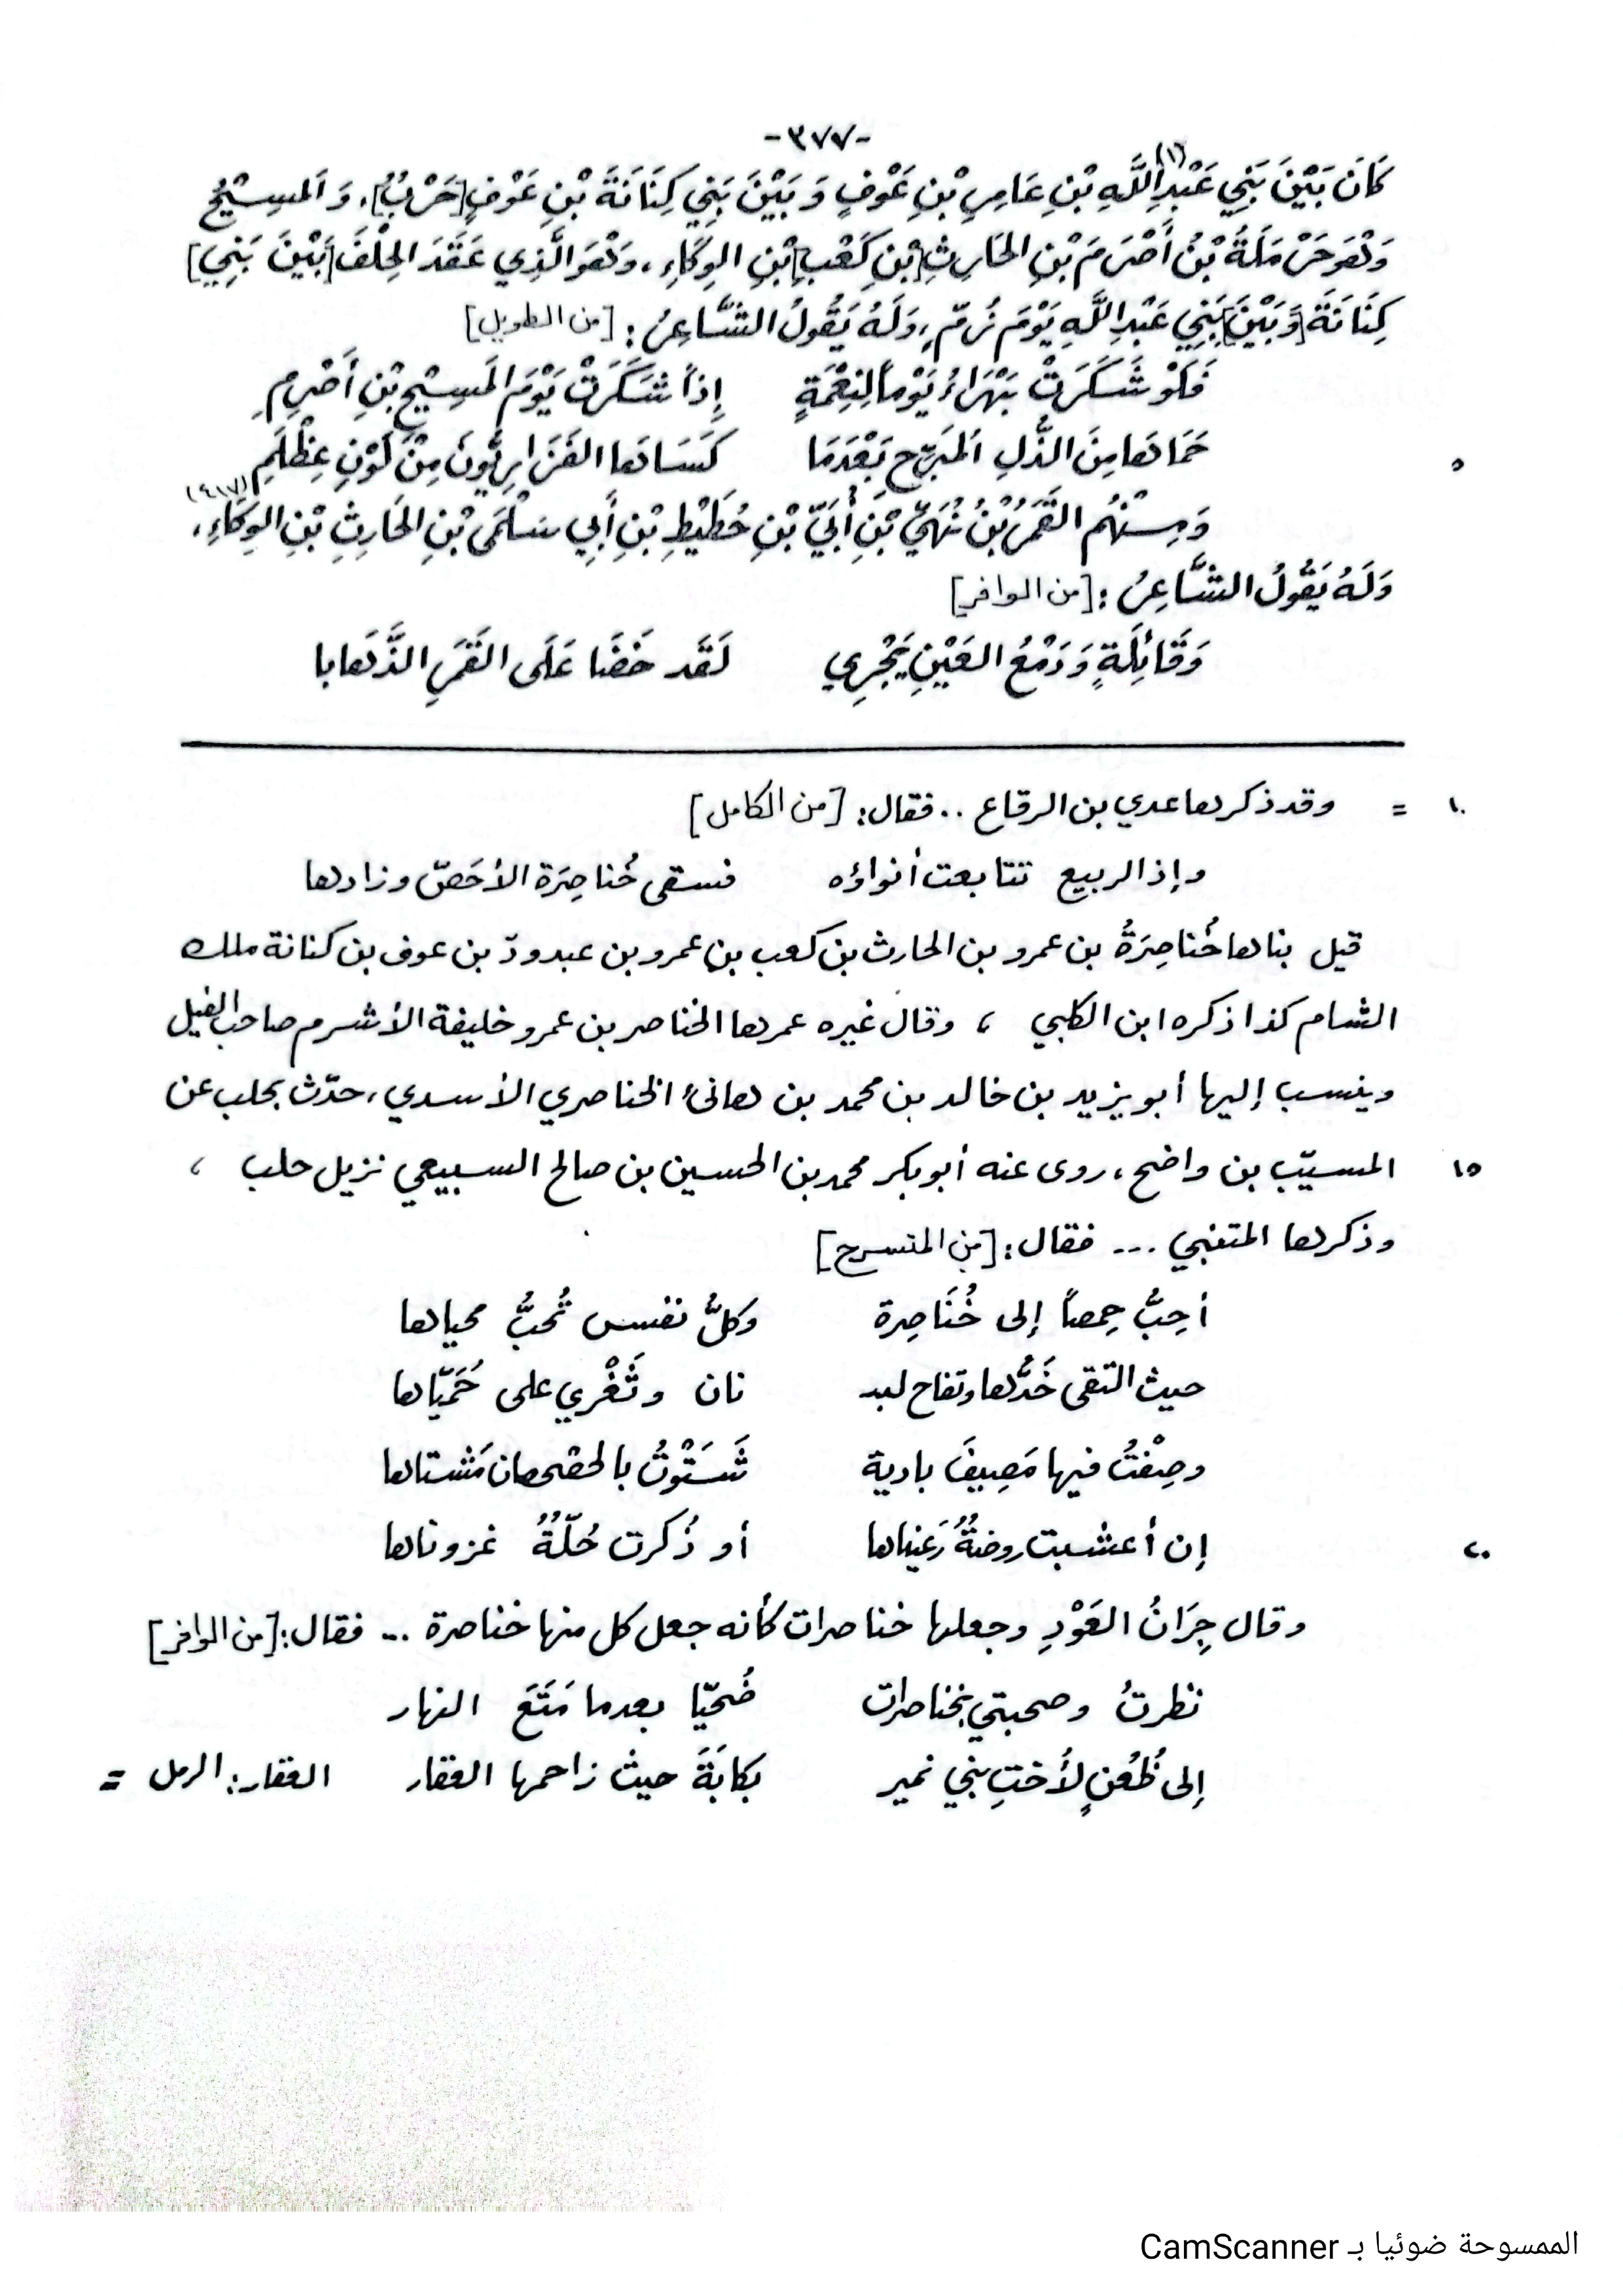 -٣٧٧-
كَانَ بَيْنَ بَنِي عَبْدِ اللَّهِ (١) بْنِ عَامِرِ بْنِ عَوْفٍ وَبَيْنَ بَنِي كِنَانَةَ بْنِ عَوْفٍ [حَرْبٌ]، وَالمَسِيْحُ
وَهُوَ حَرْمَلَةُ بْنُ أَصْرَمَ بْنِ الحَارِثِ [بْنِ كَعْبِ] بْنِ الوِكَاءِ، وَهُوَ الَّذِي عَقَدَ الحِلْفَ [بَيْنَ بَنِي]
كِنَانَةَ [وَبَيْنَ] بَنِي عَبْدِ اللَّهِ يَوْمَ رُمّ، وَلَهُ يَقُولُ الشَّاعِرُ: [من الطويل]
فَلَوْ شَكَرَتْ بَهْرَاءُ يَوْماً لِنِعْمَةٍ إِذاً شَكَرَتْ يَوْمَ المَسِيْحِ بْنِ أَصْرِمِ
٥ حَمَاهَا مِنَ الذُّلِ المُبَرِّحِ بَعْدَمَا كَسَاهَا الفَزَارِيُّونَ مِنْ لَوْنِ عِظْلَمِ
وَمِنْهُم القَمَرُ بْنُ نُهَيِّ بْنِ أُبَيِّ بْنِ حُطَيْطِ بْنِ أَبِي سَلْمَى بْنِ الحَارِثِ بْنِ الوِكَاءِ، (٤١٧)
وَلَهُ يَقُولُ الشَّاعِرُ: [من الوافر]
وَقَائِلَةٍ وَدَمْعُ العَيْنِ يَجْرِي لَقَد خَفَّا عَلَى القَمَرِ الذَّهَابا
١٠ = وقد ذكرها عدي بن الرقاع .. فقال: [من الكامل]
وإذ الربيع تتابعت أنواؤه فسقى خُناصِرَة الأحَصّ وزادها
قيل بناها خُناصِرَةُ بن عمرو بن الحارث بن كعب بن عمرو بن عبدودّ بن عوف بن كنانة ملك
الشام كذا ذكره ابن الكلبي ، وقال غيره عمرها الخناصر بن عمرو خليفة الأشرم صاحب الفيل
وينسب إليها أبو يزيد بن خالد بن محمد بن هانئ الخناصري الأسدي، حدّث بحلب عن
١٥ المسيّب بن واضح، روى عنه أبو بكر محمد بن الحسين بن صالح السبيعي نزيل حلب ،
وذكرها المتنبي ... فقال: [من المنسرح]
أحِبُّ حِمصاً إلى خُنَاصِرة وكلُّ نفسس تُحبُّ محياها
حيث التقى خَدُّها وتفاح لبـ نان وثَغْري على حُمَيّاها
وصِفْتُ فيها مَصِيفَ بادية شَسَتَوْتُ بالحصحصان مَشتاها
إن أعشبت روضةٌ رَعيناها أو ذُكرت حُلّةٌ غزوناها ٢٠
وقال جِرَانُ العَوْدِ وجعلها خناصرات كأنه جعل كل منها خناصرة ... فقال: [من الوافر]
نظرتُ وصحبتي بخناصرات ضُحيّا بعدما مَتَعَ النهار
إلى ظُعُنٍ لأُختِ بني نمير بكابَةَ حيث زاحمها العقار العقار: الرمل =
الممسوحة ضوئيا بـ CamScanner